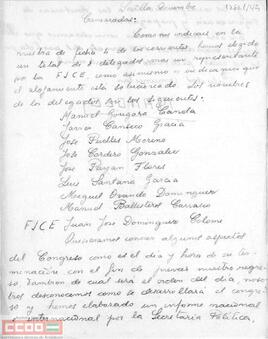 Sevilla Diciembre
Camaradas:
Como nos indicais en la
vuestra de fecha 6 de los corrientes, hemos elegido
un total de 8 delegados mas un representante
por la FJCE, como asimismo
el alojamiento esta solucionado. Los nombres
de los delegados son los siguientes:
Manuel Gongora Canela
Javier Canseco Gracia
Jose Puelles Moreno
Jose Cordero Gonzalez
Jose Payan Flores
Luis Santana Garcia
Miguel Ovando Dominguez
Manuel Ballesteros Carrasco
FJCE Juan Jose Dominguez
Quisieramos conocer algunos aspectos
del Congreso como es el dia y hora de su ter-
minacion con el fin de preveer nuestro regre-
so, tambien de cual sera el orden del dia, noso-
tros desconocemos como se desarrollará el congre-
so, y hemos elaborado un informe nacional
e internacional por la Secretaria Politica,
CCOO